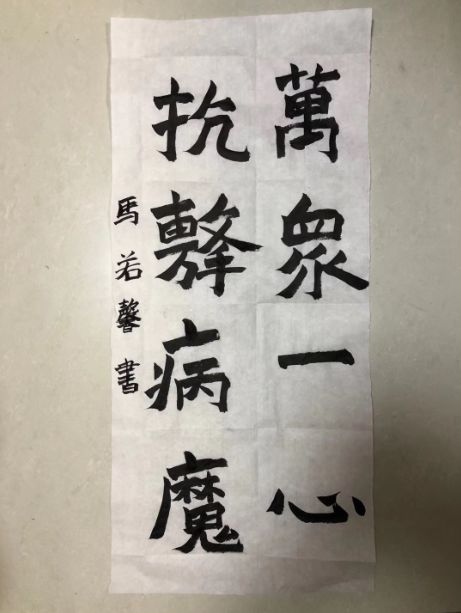 萬衆一心
抗擊病魔
馬若馨書